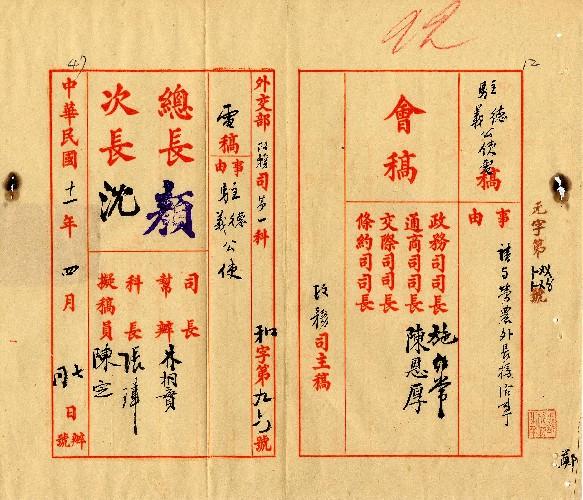 12
92
47
駐德義公使
稿
事由
請與勞農外長接洽事
元字第
號
會稿
政務司司長 施
通商司司長 陳恩厚
交際司司長
條約司司長
政務司主稿
外交部政務司第一科
和字第九六號
電稿
事由
駐德義公使
總長 顏
次長 沈
司長
幫辦
科長 張
擬稿員 陳定
中華民國十一年四月七日辦
號
鄭